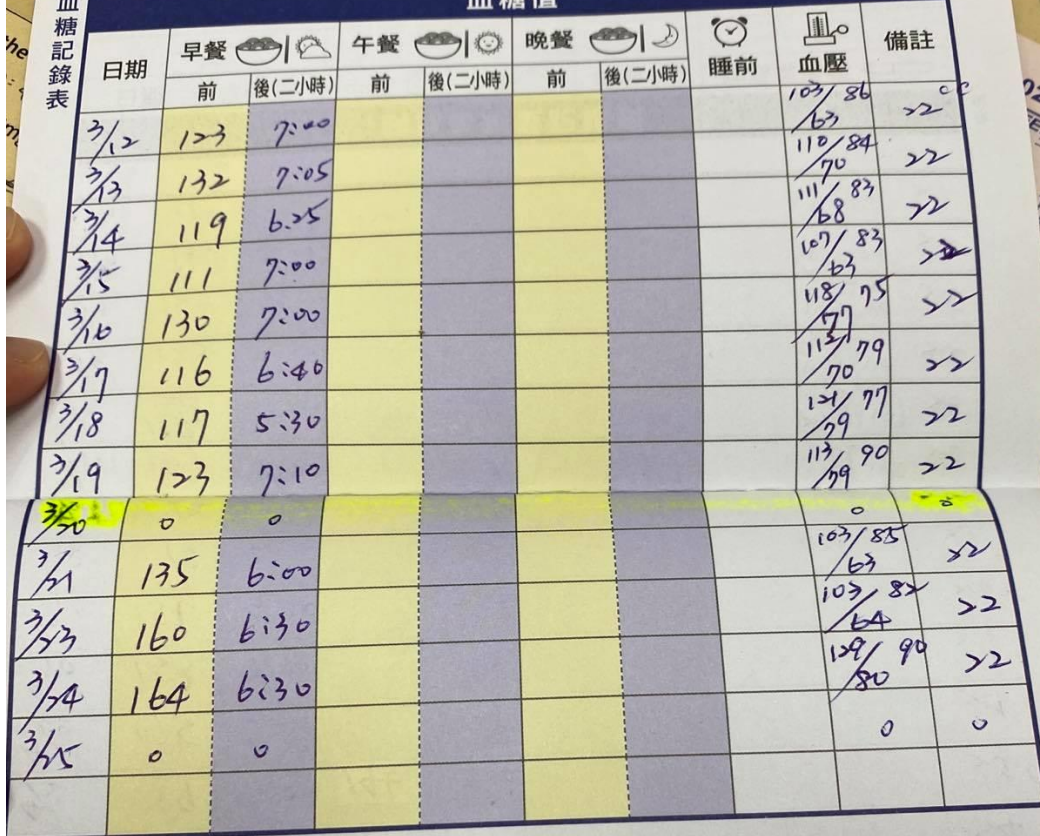 血糖記錄表
血糖值
日期 早餐 午餐 晚餐 睡前 血壓 備註
前 後(二小時) 前 後(二小時) 前 後(二小時)
3/12 123 7:00 103/63 86 22°C
3/13 132 7:05 110/70 84 22
3/14 119 6:25 111/68 83 22
3/15 111 7:00 107/63 83
3/16 130 7:00 118/77 75 22
3/17 116 6:40 113/70 79 22
3/18 117 5:30 121/79 77 22
3/19 123 7:10 113/79 90 22
3/20 0 0 0 0
3/21 135 6:00 103/63 85 22
3/23 160 6:30 103/64 82 22
3/24 164 6:30 129/80 90 22
3/25 0 0 0 0